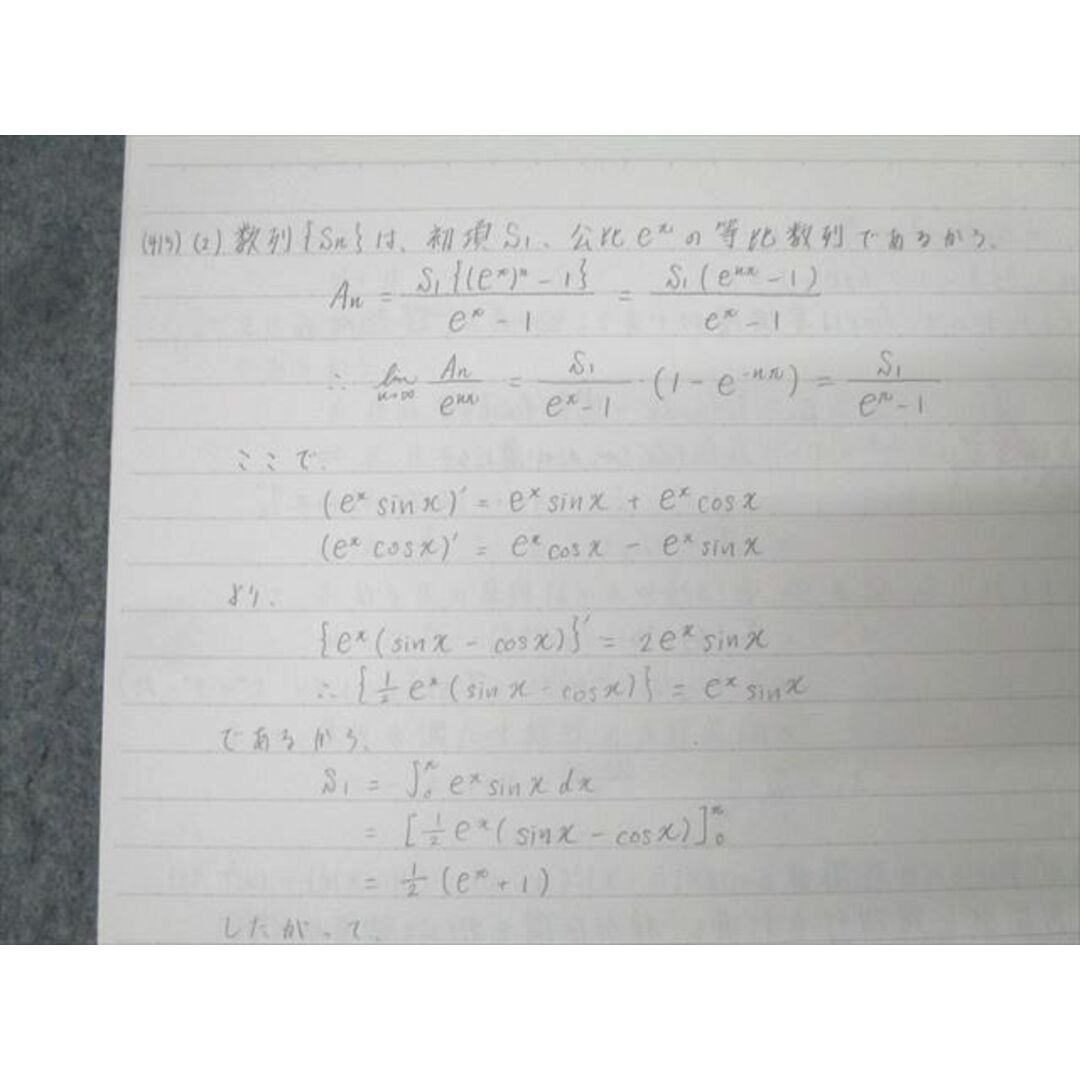 (4/5) (2) 数列{Sn}は、初項S₁、公比e^πの等比数列であるから、
An = S₁{(e^π)^n - 1} / (e^π - 1) = S₁(e^{nπ} - 1) / (e^π - 1)
∴ lim_{n→∞} An / e^{nπ} = S₁ / (e^π - 1) · (1 - e^{-nπ}) = S₁ / (e^π - 1)
ここで、
(e^x sin x)' = e^x sin x + e^x cos x
(e^x cos x)' = e^x cos x - e^x sin x
より、
{e^x (sin x - cos x)}' = 2e^x sin x
∴ {1/2 e^x (sin x - cos x)} = e^x sin x
であるから、
S₁ = ∫₀^π e^x sin x dx
= [1/2 e^x (sin x - cos x)]₀^π
= 1/2 (e^π + 1)
したがって、